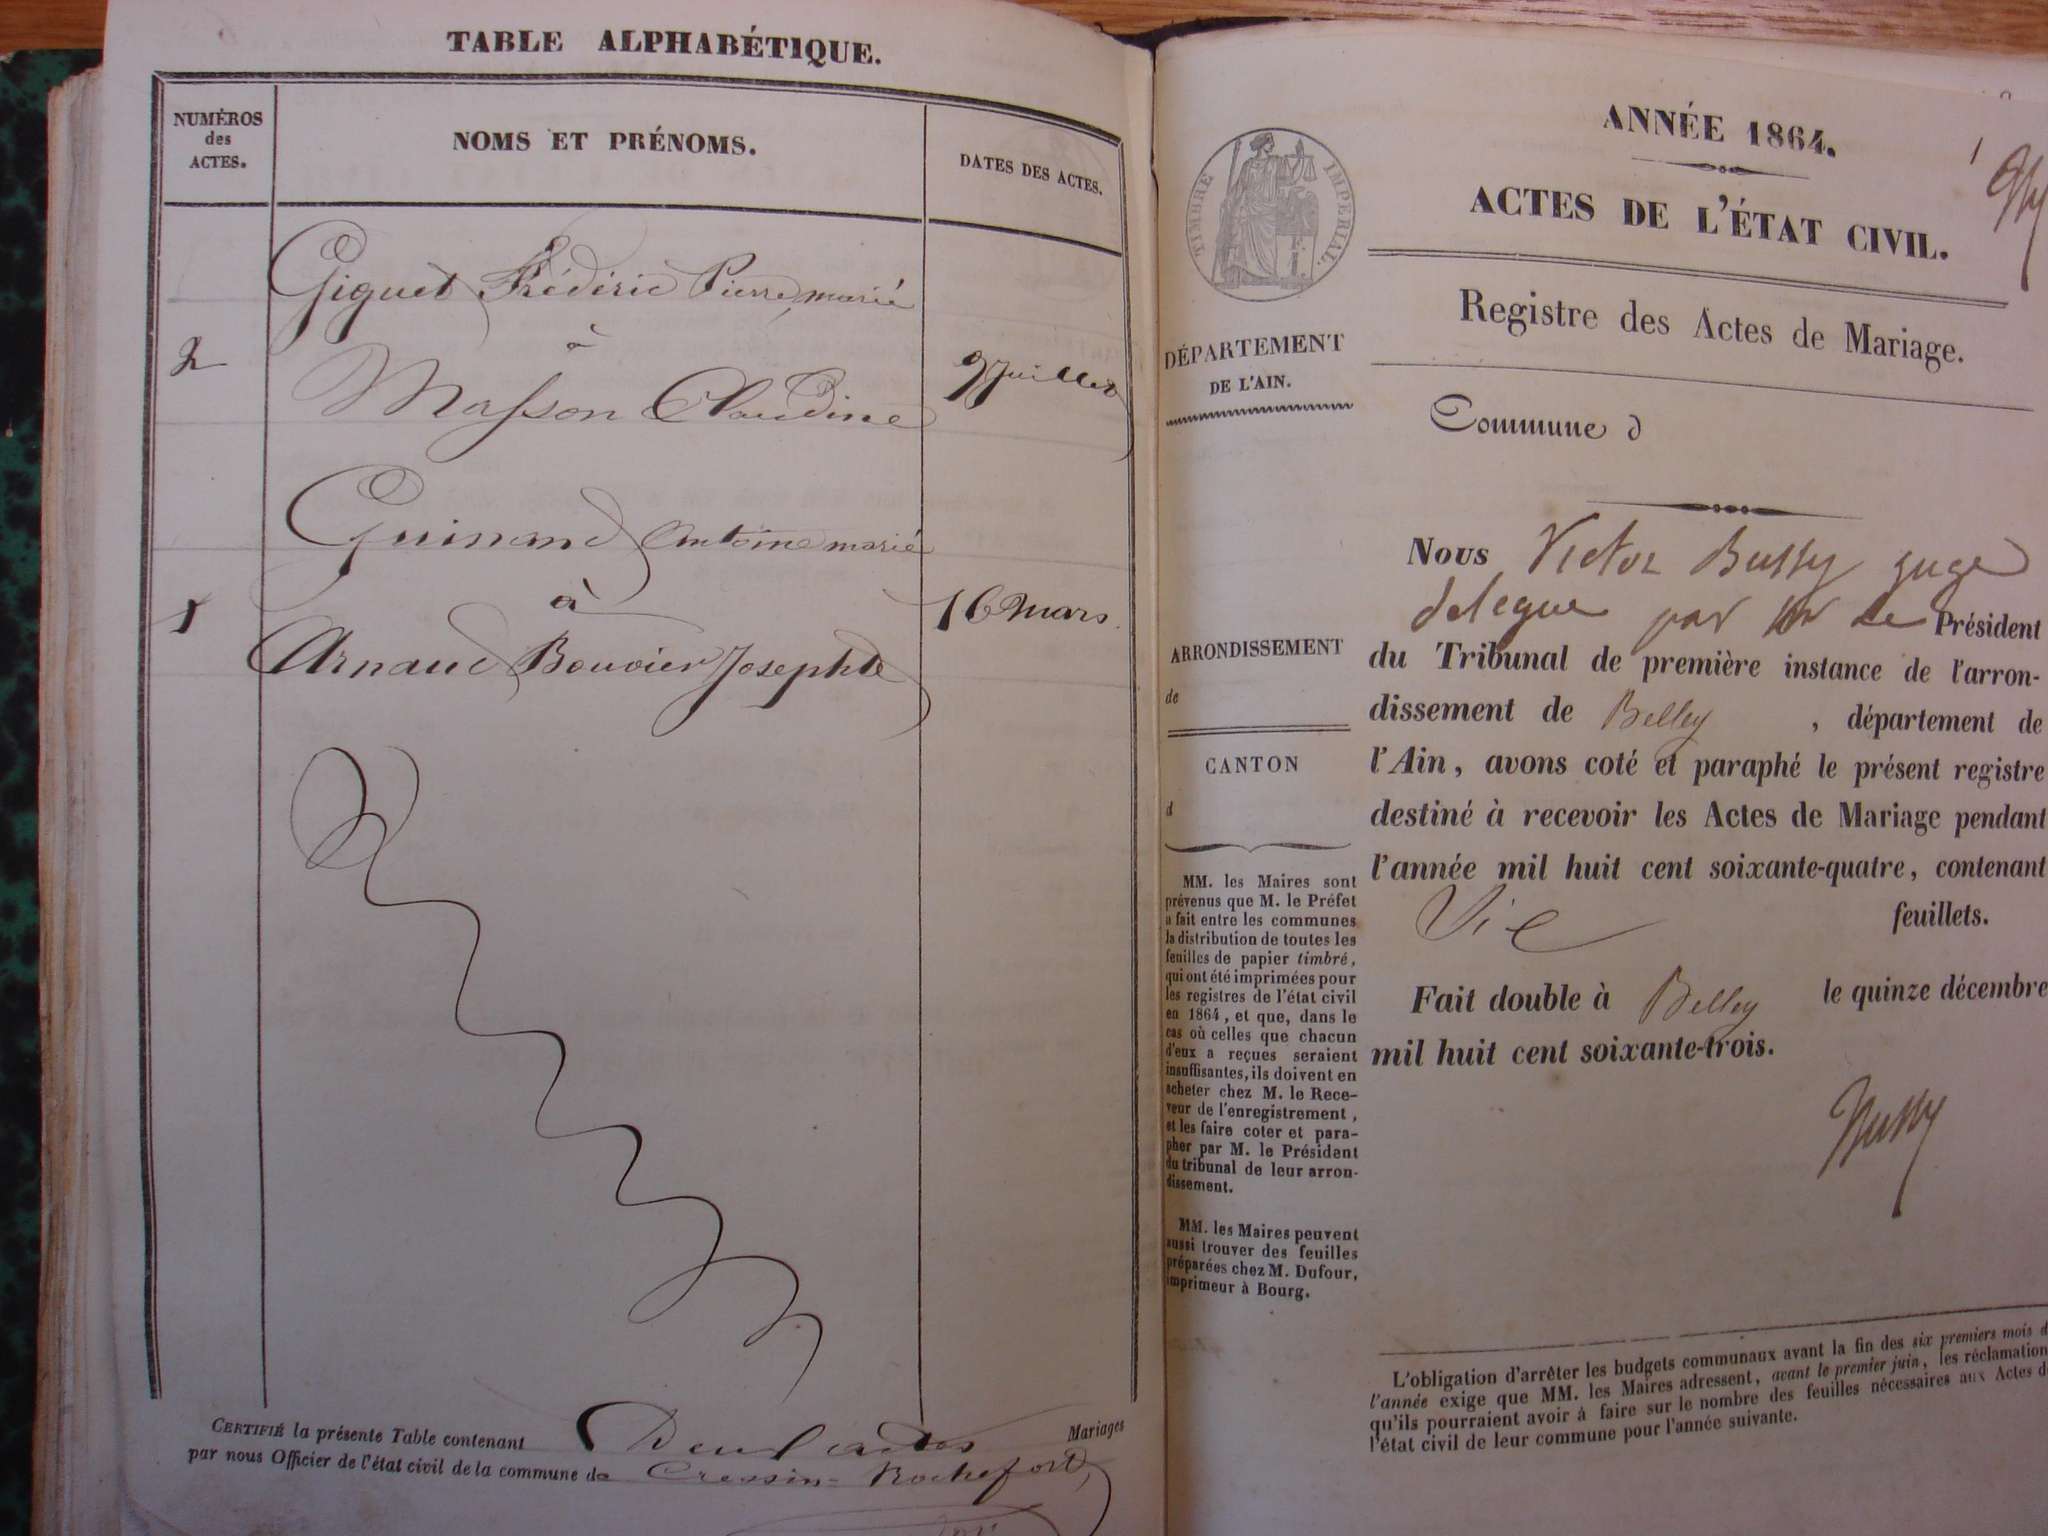 TABLE ALPHABÉTIQUE.
NUMÉROS
des
ACTES.
NOMS ET PRÉNOMS.
DATES DES ACTES.
Giguet Frédéric Pierre marié
à
2
Masson Claudine
9 Juillet
Guinand Antoine marié
à
1
16 Mars
Arnaud Bouvier Josephte
CERTIFIÉ la présente Table contenant Deux actes Mariages
par nous Officier de l'état civil de la commune de Cressin-Rochefort,
ANNÉE 1864.
1
ACTES DE L'ÉTAT CIVIL.
TIMBRE IMPERIAL.
Registre des Actes de Mariage.
DÉPARTEMENT
DE L'AIN.
Commune d
Nous Victor Bussy juge
delegue par le Président
du Tribunal de première instance de l'arron-
dissement de Belley , département de
l'Ain, avons coté et paraphé le présent registre
destiné à recevoir les Actes de Mariage pendant
l'année mil huit cent soixante-quatre, contenant
feuillets.
Fait double à Belley le quinze décembre
mil huit cent soixante-trois.
Bussy
ARRONDISSEMENT
de
CANTON
d
MM. les Maires sont
prévenus que M. le Préfet
a fait entre les communes
la distribution de toutes les
feuilles de papier timbré,
qui ont été imprimées pour
les registres de l'état civil
en 1864, et que, dans le
cas où celles que chacun
d'eux a reçues seraient
insuffisantes, ils doivent en
acheter chez M. le Rece-
veur de l'enregistrement,
et les faire coter et para-
pher par M. le Président
du tribunal de leur arron-
dissement.
MM. les Maires peuvent
aussi trouver des feuilles
préparées chez M. Dufour,
imprimeur à Bourg.
L'obligation d'arrêter les budgets communaux avant la fin des six premiers mois d
l'année exige que MM. les Maires adressent, avant le premier juin, les réclamation
qu'ils pourraient avoir à faire sur le nombre des feuilles nécessaires aux Actes d
l'état civil de leur commune pour l'année suivante.